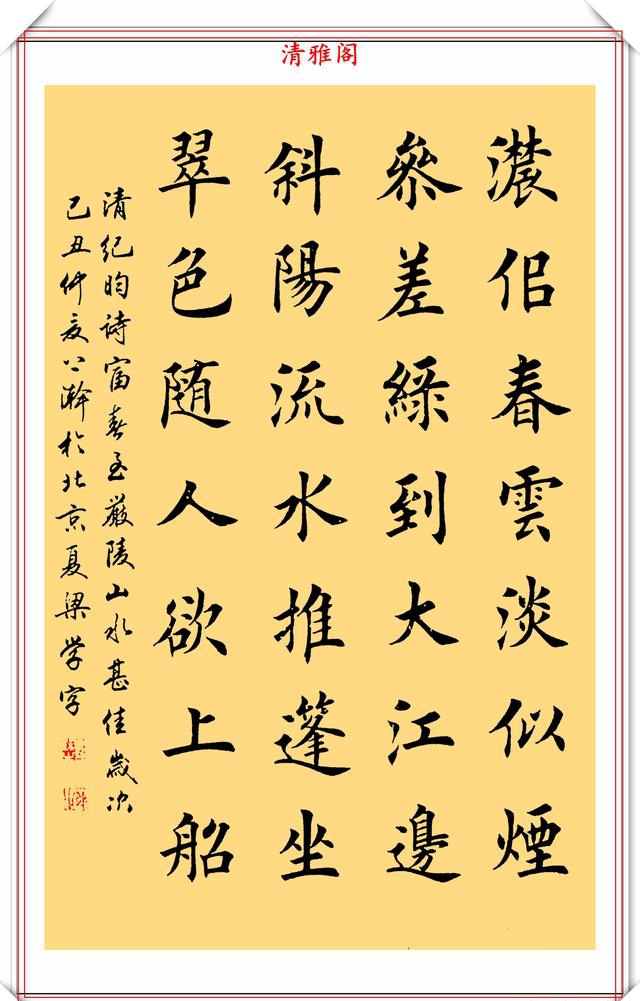 清雅阁
濃佀春雲淡似煙
叅差綠到大江邊
斜陽流水推蓬坐
翠色随人欲上船
清紀昀詩富春至嚴陵山水甚佳歲次
己丑仲夏公瀚於北京夏梁学字